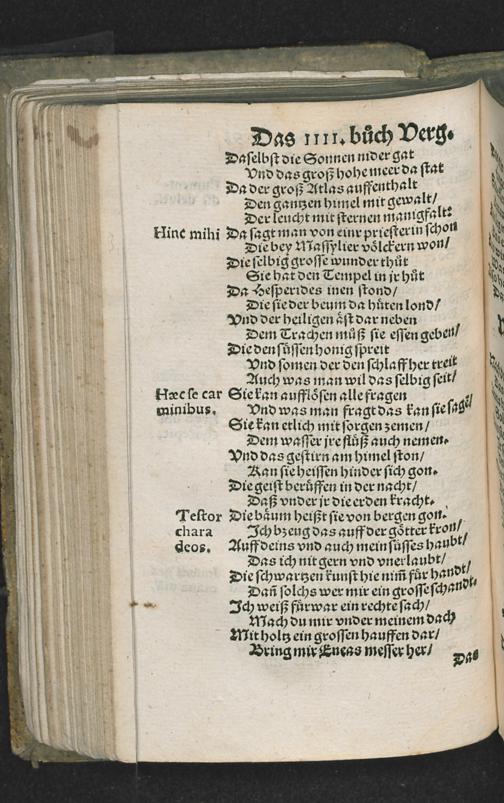 Das IIII. bůch Verg.
Daselbst die Sonnen nider gat
Vnd das groß hohe meer da stat
Da der groß Atlas auffenthalt
Den gantzen himel mit gewalt/
Der leucht mit sternen manigfalt:
Hinc mihi Da sagt man von einr priesterin schon
Die bey Massylier völckern won/
Die selbig grosse wunder thůt
Sie hat den Tempel in jr hůt
Da Hesperides inen stond/
Die sie der beum da hůten lond/
Vnd der heiligen äst dar neben
Dem Trachen můß sie essen geben/
Die den süssen honig spreit
Vnd somen der den schlaff her treit
Auch was man wil das selbig seit/
Hæc se car Sie kan aufflösen alle fragen
minibus. Vnd was man fragt das kan sie sagē/
Sie kan etlich mit sorgen zemen/
Dem wasser jre flüß auch nemen.
Vnd das gestirn am himel ston/
Kan sie heissen hinder sich gon.
Die geist berüffen in der nacht/
Daß vnder jr die erden kracht.
Testor Die bäum heißt sie von bergen gon.
chara Ich bzeug das auff der götter kron/
deos. Auff deins vnd auch mein süsses haubt/
Das ich nit gern vnd vnerlaubt/
Die schwartzen kunst hie nim̄ für handt/
Dan̄ solchs wer mir ein grosse schandt.
Ich weiß fürwar ein rechte sach/
Mach du mir vnder meinem dach
Mit holtz ein grossen hauffen dar/
Bring mir Eneas messer her/
Das